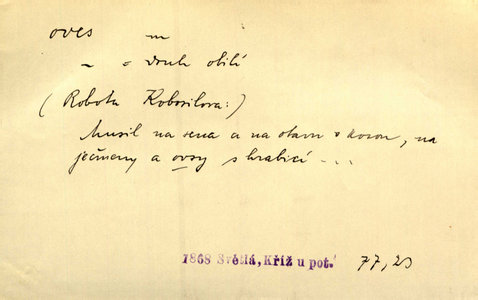 oves m
~ o druh obilí
(Robota Kobosilova:)
Musil na sena a na otavu s kosou, na
ječmeny a ovsy s hrabicí ...
1868 Světlá, Kříž u pot.
77, 23